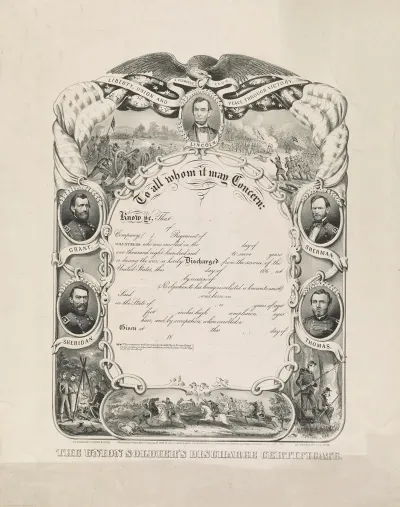 LIBERTY, UNION AND
PEACE THROUGH VICTORY.
LINCOLN.
To all whom it may Concern:
Know ye, That
Company, Regiment of
VOLUNTEERS, who was enrolled on the day of
one thousand eight hundred and to serve years
or during the war, is hereby Discharged from the service of the
United States, this day of 186 at
by reason of
No objection to his being re-enlisted is known to exist.
Said was born in
in the State of is years of age
feet inches high complexion eyes
hair, and by occupation, when enrolled a
Given at this day of
18
GRANT.
SHERMAN.
SHERIDAN.
THOMAS.
THE UNION SOLDIER'S DISCHARGE CERTIFICATE.